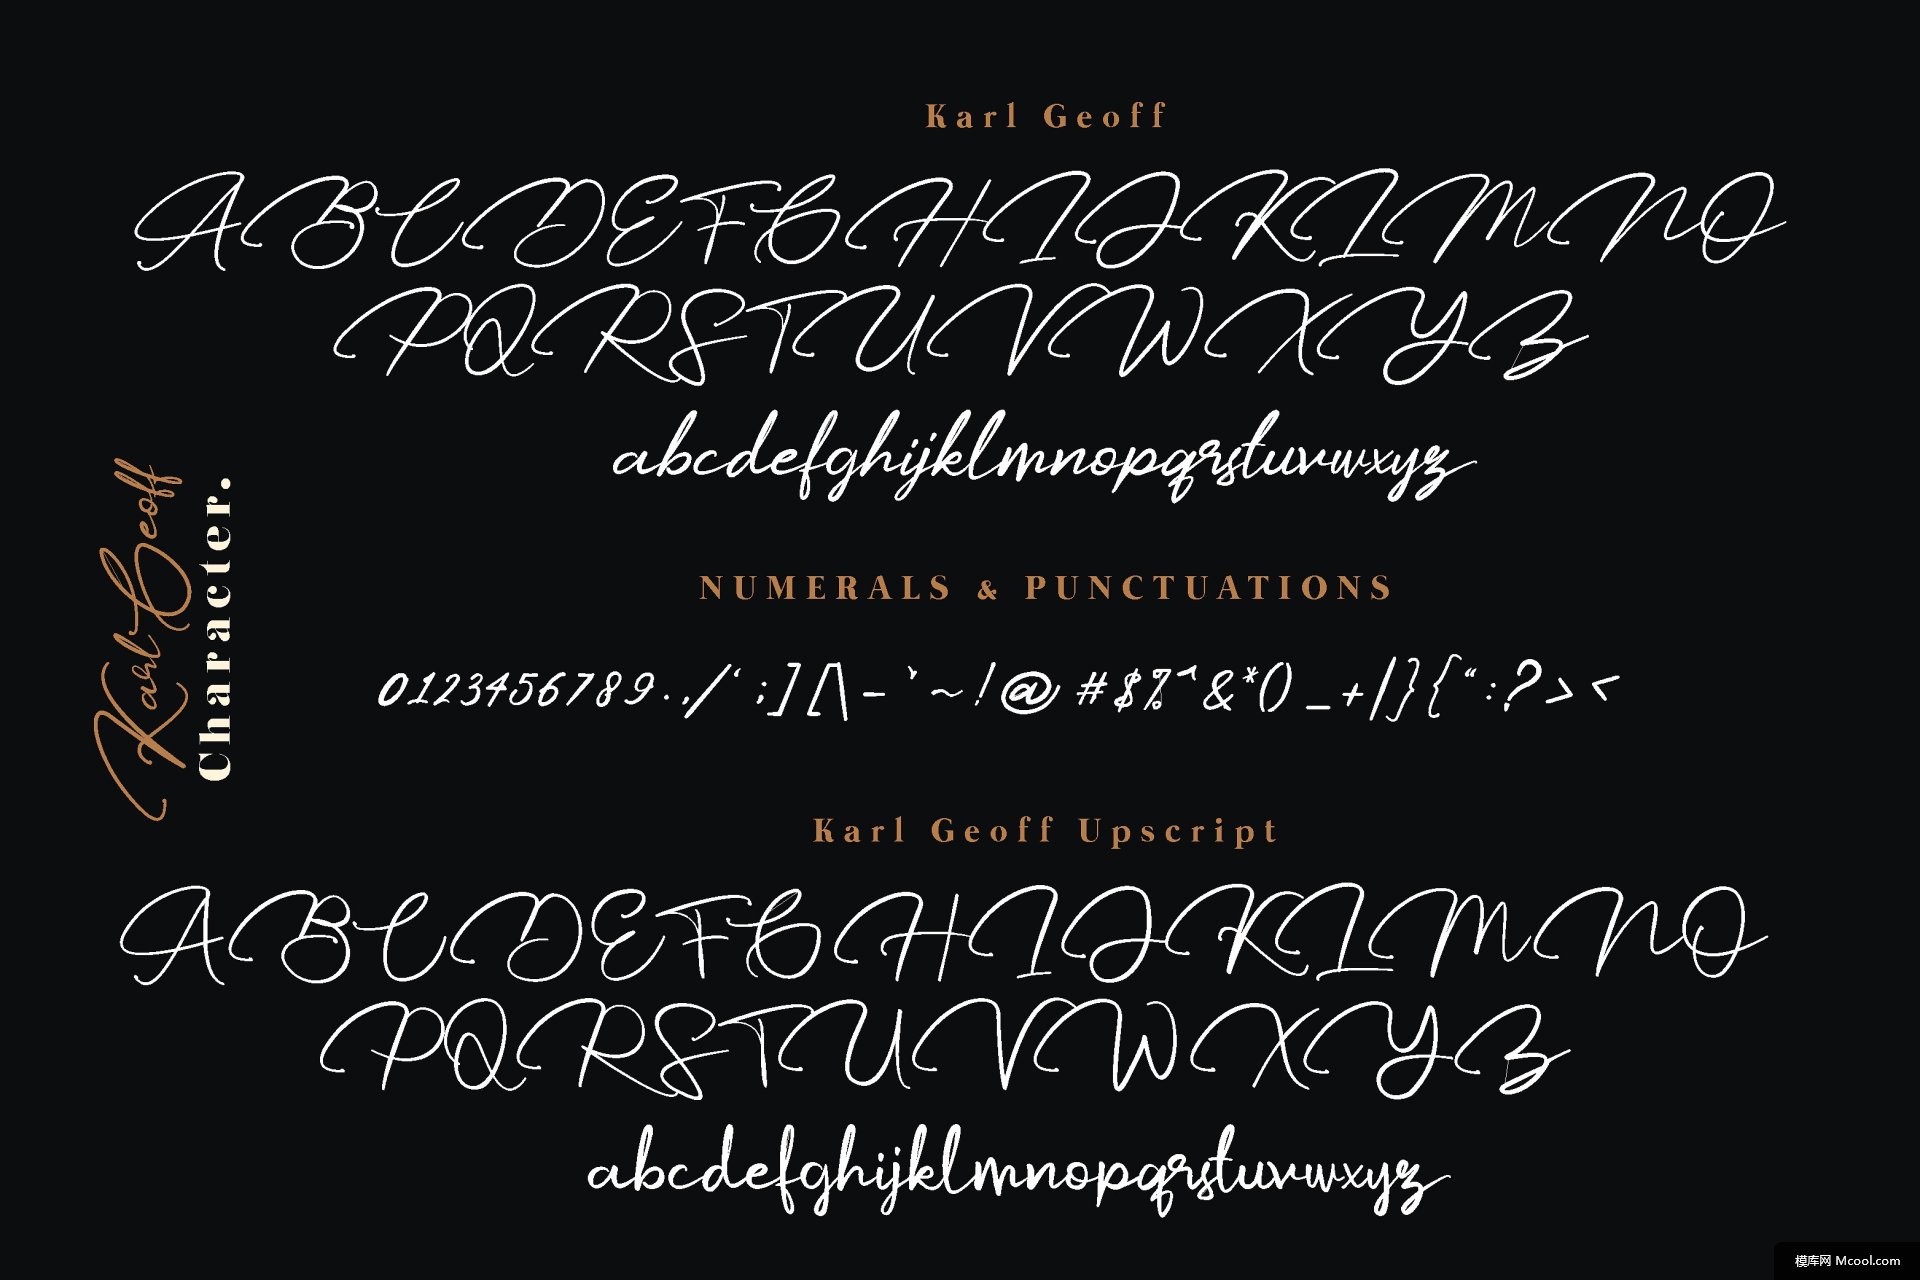 Karl Geoff
ABCDEFGHIJKLMNO
PQRSTUVWXYZ
abcdefghijklmnopqrstuvwxyz
Karl Geoff
Character.
NUMERALS & PUNCTUATIONS
0123456789.,/‘;][\-’~!@#$%^&*()_+|}{“:?><
Karl Geoff Upscript
ABCDEFGHIJKLMNO
PQRSTUVWXYZ
abcdefghijklmnopqrstuvwxyz
模库网 Mcool.com